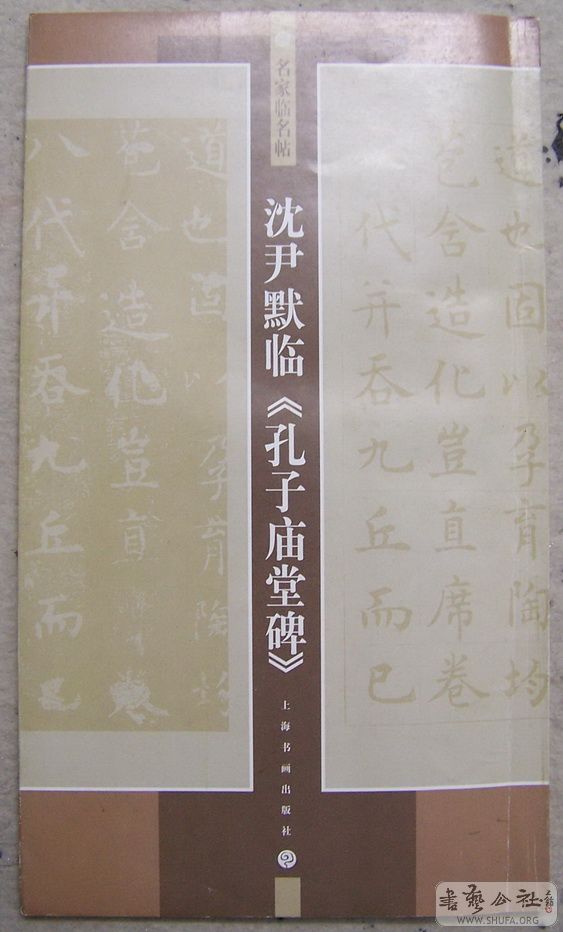 名家临名帖
沈尹默临《孔子庙堂碑》
上海书画出版社
道也固以孕育陶均
苞含造化豈直席卷
八代并吞九丘而已
道也固以孕育陶均
苞含造化豈直席卷
八代并吞九丘而已
書藝公社
WWW.SHUFA.ORG